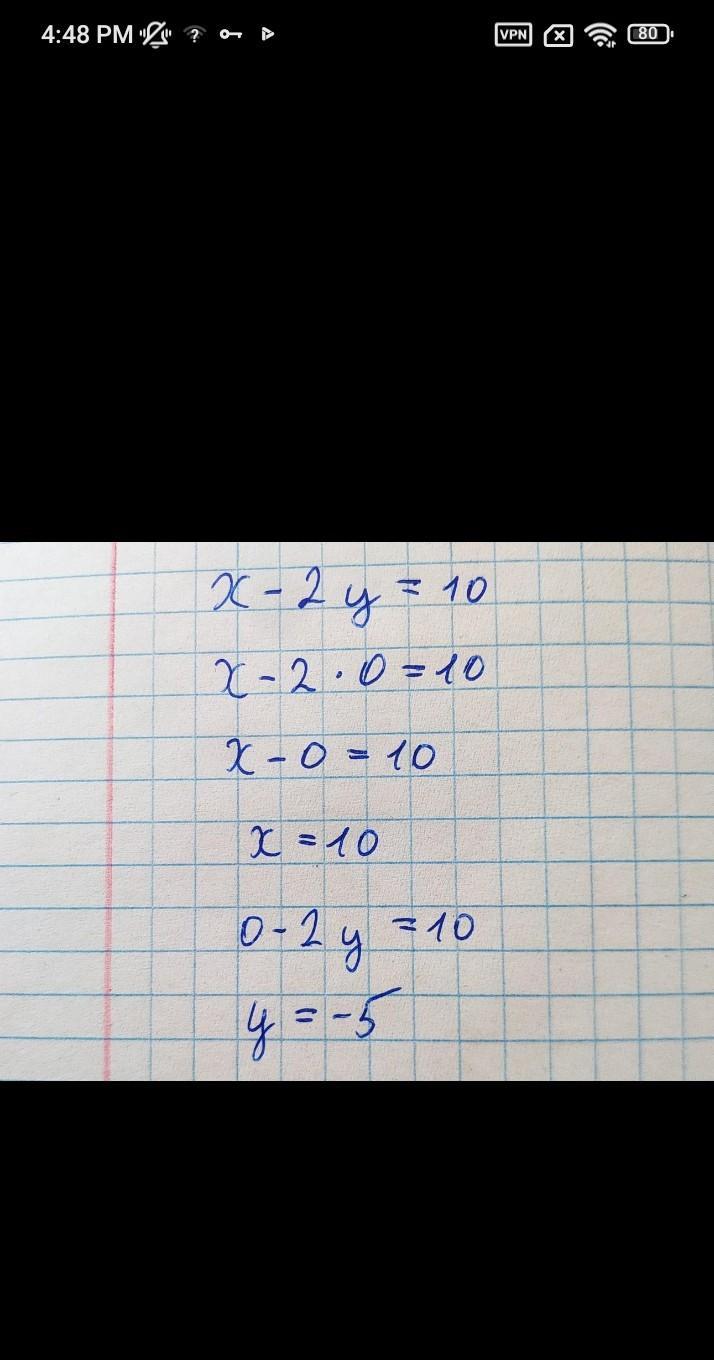 4:48 PM
VPN
80
x - 2y = 10
x - 2 · 0 = 10
x - 0 = 10
x = 10
0 - 2y = 10
y = -5